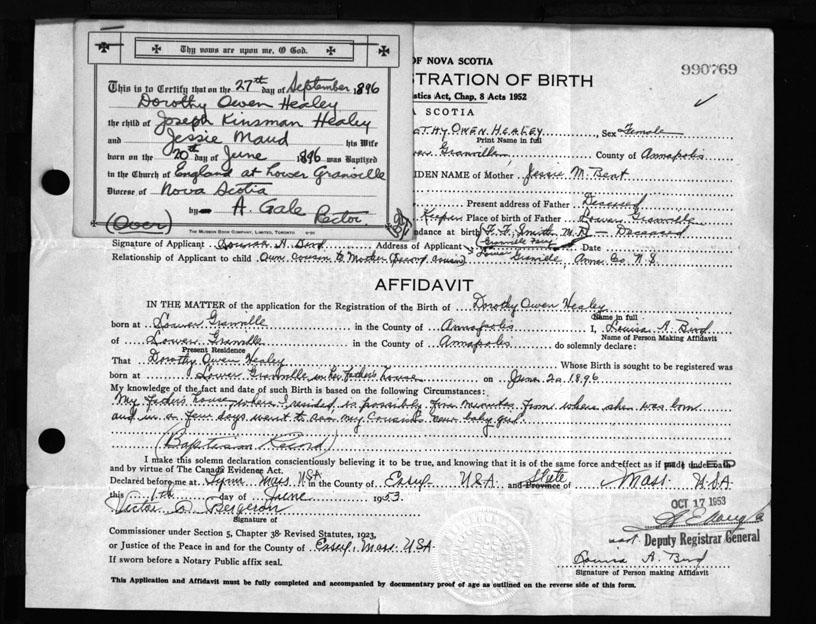 Thy vows are upon me, O God.
This is to Certify that on the 27th day of September 1896
Dorothy Owen Healey
the child of Joseph Kinsman Healey
and Jessie Maud his Wife
born on the 20th day of June 1896 was Baptized
in the Church of England at Lower Granville
Diocese of Nova Scotia
by A. Gale Rector
(Over)
THE MUSSON BOOK COMPANY, LIMITED, TORONTO
OF NOVA SCOTIA
STRATION OF BIRTH
990769
stics Act, Chap. 8 Acts 1952
A SCOTIA
THY OWEN HEALEY, Sex Female
Print Name in full
er Granville, County of Annapolis
IDEN NAME of Mother Jessie M. Bent
Present address of Father Deceased
Keeper Place of birth of Father Lower Granville
ndance at birth F. Smith M.D. – Deceased
Signature of Applicant Louisa A. Bird Address of Applicant Granville Ferry Date
Relationship of Applicant to child Own Cousin to Mother (Second Cousin) Lower Granville, Anna Co N.S.
AFFIDAVIT
IN THE MATTER of the application for the Registration of the Birth of Dorothy Owen Healey
Name in full
born at Lower Granville in the County of Annapolis I, Louisa A. Bird
Name of Person Making Affidavit
of Lower Granville in the County of Annapolis do solemnly declare:
Present Residence
That Dorothy Owen Healey Whose Birth is sought to be registered was
born at Lower Granville in her father's house on June 20 1896
My knowledge of the fact and date of such Birth is Based on the following Circumstances:
My father's house, where I resided, is possibly five minutes from where she was born
and in a few days went to see my Cousin's new baby girl.
(Baptismal Record)
I make this solemn declaration conscientiously believing it to be true, and knowing that it is of the same force and effect as if made under oath
and by virtue of The Canada Evidence Act.
Declared before me at Lynn Mass USA in the County of Essex USA and State Province of Mass USA
this 1th day of June 1953
OCT 17 1953
Victor A. Bergeron
Signature of
Deputy Registrar General
Commissioner under Section 5, Chapter 38 Revised Statutes, 1923,
or Justice of the Peace in and for the County of Essex, Mass. USA
If sworn before a Notary Public affix seal.
Louisa A. Bird
Signature of Person making Affidavit
This Application and Affidavit must be fully completed and accompanied by documentary proof of age as outlined on the reverse side of this form.